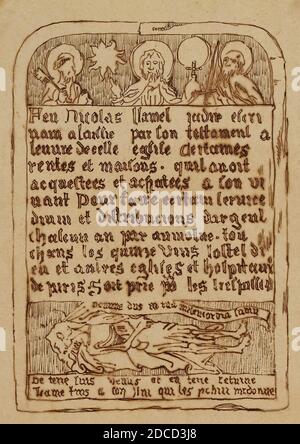 Feu Nicolas flamel jadis escri
uain a laissie par son testament a
leuure de ceste eglise certaines
rentes et maisons. quil auoit
acquestees et achatees a son vi
uant pour faire certain seruice
diuin et distribucions dargent
chascun an par aumosne. tou
chans les quinze vins lostel di
eu et autres eglises et hospitaux
de paris Soit prie po les trespasses
Domine dns in tua misericordia
De terre suis venus et en terre retourne
Lame rens a toy qui les pechiez pardonne